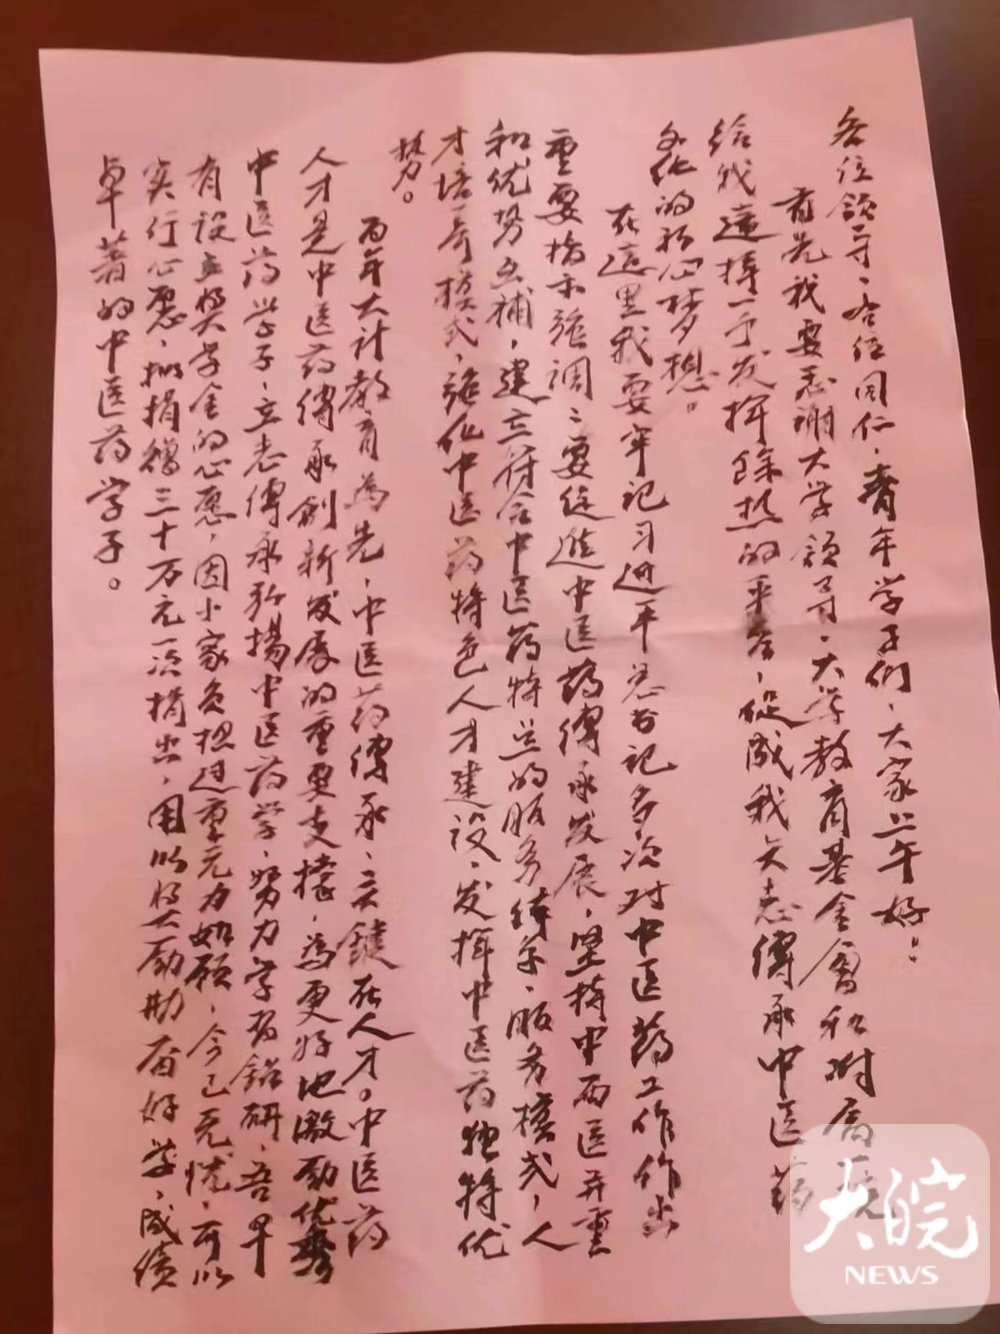 各位领导、各位同仁、青年学子们，大家上午好。
首先我要感谢大学领导、大学教育基金会和附属医院
给我这样一个发挥馀热的平台，促成我矢志傳承中医药
文化的初心梦想。
在這里我要牢记习近平总书记多次对中医药工作作出
重要指示强调：要促進中医药傳承发展，坚持中西医并重
和优势互補，建立符合中医药特点的服务体系、服务模式，人
才培养模式，強化中医药特色人才建设、发挥中医药独特优
势。
百年大计教育為先，中医药傳承、关键在人才。中医药
人才是中医药傳承創新发展的重要支撐，為更好地激励优秀
中医药学子、立志傳承弘揚中医药学、努力学習鉆研，吾早
有设立奖学金的心愿，因小家负担过重无力如願，今已无忧，可以
实行心愿，拟捐赠三十万元一次捐出，用以奖励勤奋好学，成绩
卓著的中医药学子。
大皖
NEWS